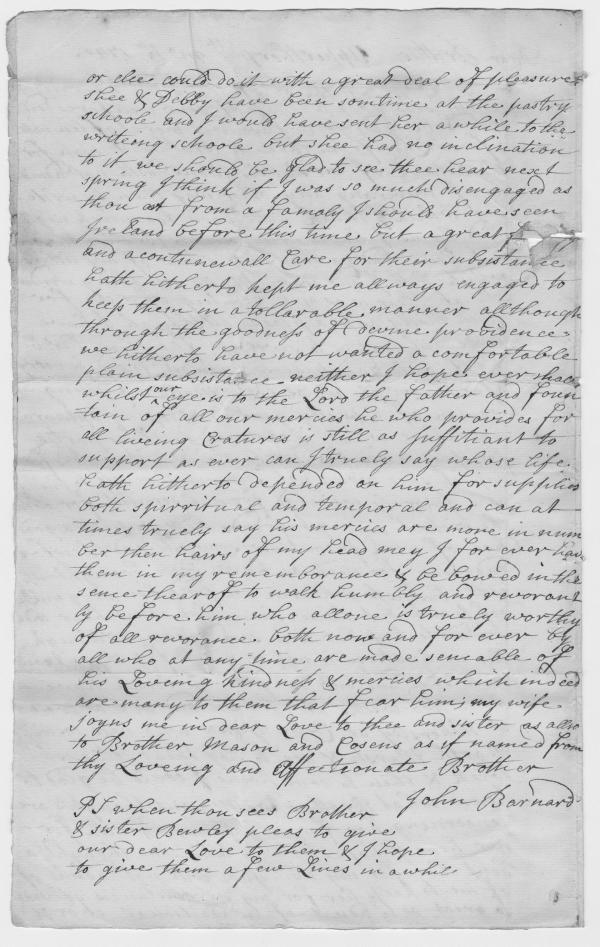 or else could do it with a great deal of pleasure
shee & Debby have been somtime at the pastry
schoole and I would have sent her a while to the
writeong schoole but shee had no inclination
to it we should be glad to see thee hear next
spring I think if I was so much disengaged as
thou at from a famoly I should have seen
Ireland before this time but a great
and a contunewall Care for their subsistance
hath hitherto kept me allways engaged to
keep them in a tollarable manner allthough
through the goodness of devine providence
we hitherto have not wanted a comfortable
plain subsistance neither I hope ever shall
whilst our eye is to the Lord the father and foun
=tain of all our mercies he who provides for
all liveing Cratures is still as suffitiant to
support as ever can I truely say whose life
hath hitherto depended on him for supplies
both spirritual and temporal and can at
times truely say his mercies are more in num
ber then hairs of my head mey I for ever have
them in my rememborance & be bowed in the
sence thearof to walk humbly and reworant
ly before him who allone is truely worthy
of all reworance both now and for ever by
all who at any time are made sencable of
his Loveing kindness & mercies which indeed
are many to them that fear him; my wife
joyns me in dear Love to thee and sister as allso
to Brother, Mason and Cosens as if named from
thy Loveing and Affectionate Brother
John Barnard
PS when thou sees Brother
& sister Bewley pleas to give
our dear Love to them & I hope
to give them a few Lines in a while